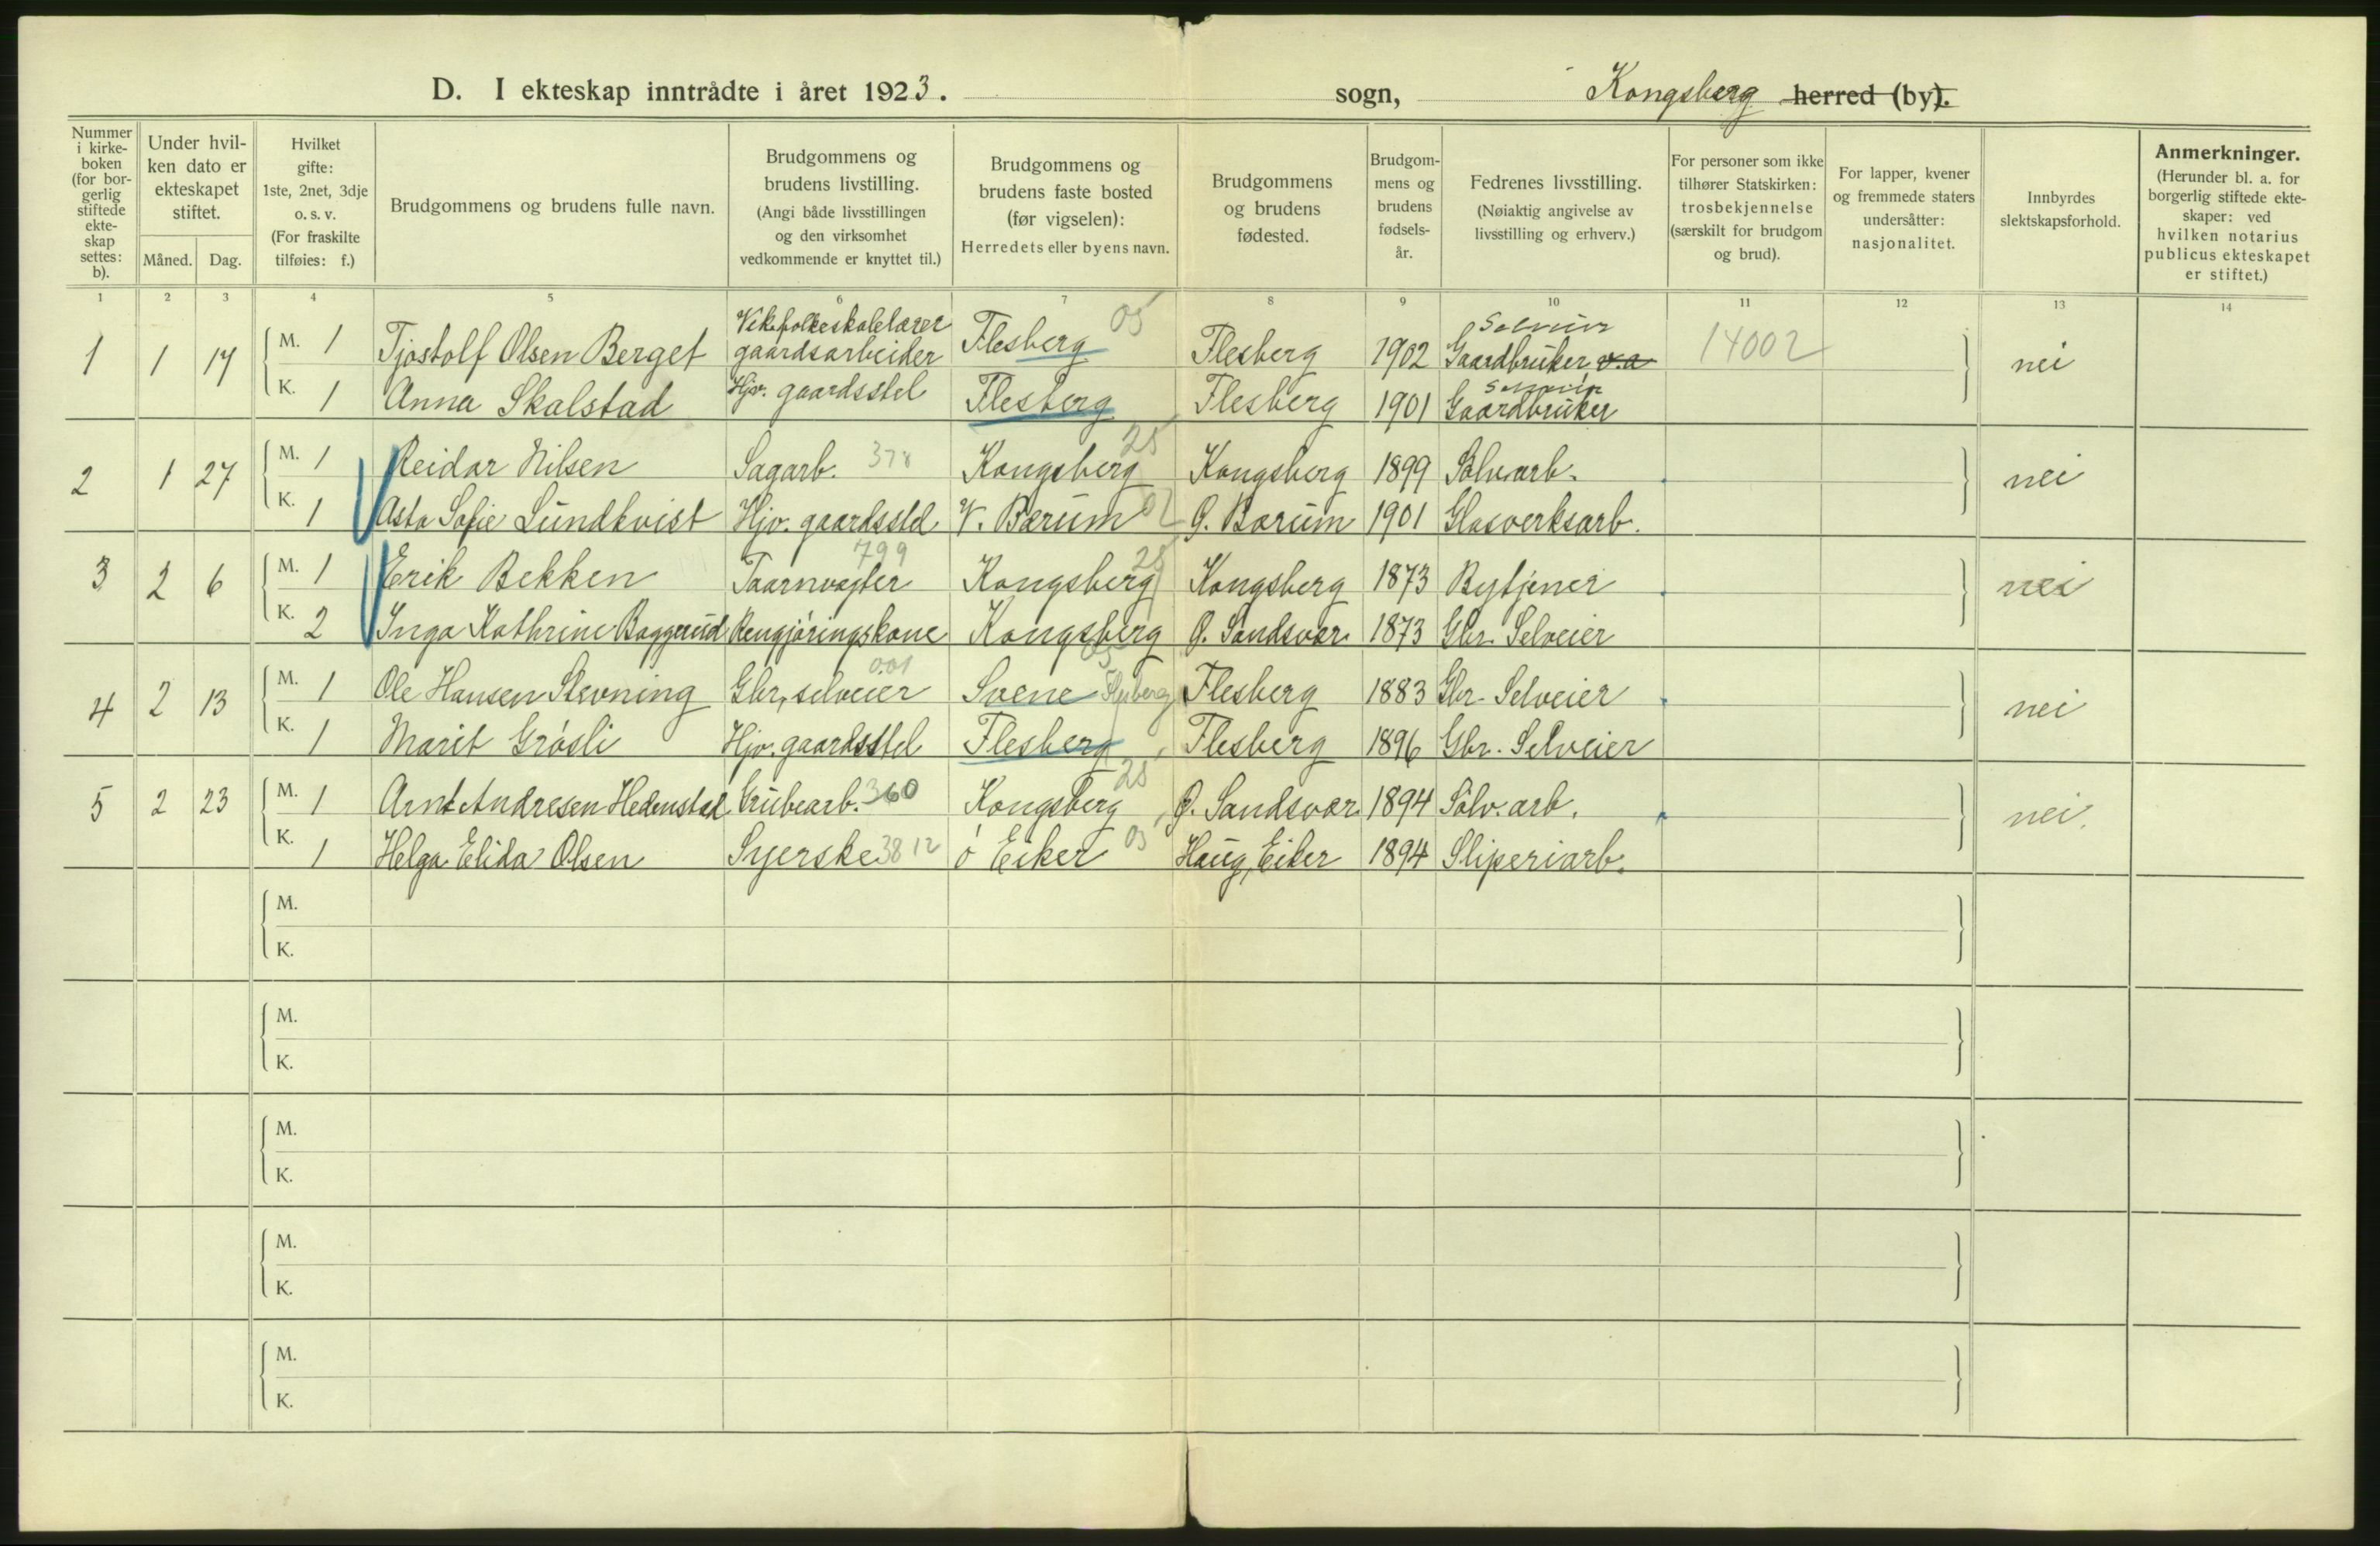 D. I ekteskap inntrådte i året 1923. sogn, Kongsberg herred (by).
Nummer i kirkeboken (for borgerlig stiftede ekteskap settes: b).
Under hvilken dato er ekteskapet stiftet.
Måned. Dag.
Hvilket gifte: 1ste, 2net, 3dje o. s. v. (For fraskilte tilføies: f.)
Brudgommens og brudens fulle navn.
Brudgommens og brudens livstilling. (Angi både livsstillingen og den virksomhet vedkommende er knyttet til.)
Brudgommens og brudens faste bosted (før vigselen): Herredets eller byens navn.
Brudgommens og brudens fødested.
Brudgommens og brudens fødselsår.
Fedrenes livsstilling. (Nøiaktig angivelse av livsstilling og erhverv.)
For personer som ikke tilhører Statskirken: trosbekjennelse (særskilt for brudgom og brud).
For lapper, kvener og fremmede staters undersåtter: nasjonalitet.
Innbyrdes slektskapsforhold.
Anmerkninger. (Herunder bl. a. for borgerlig stiftede ekteskaper: ved hvilken notarius publicus ekteskapet er stiftet.)
1 2 3 4 5 6 7 8 9 10 11 12 13 14
Vikefolkeskolelærer 05
1 1 17 M. 1 Tjostolf Olsen Berget gaardsarbeider Flesberg Flesberg 1902 Gaardbruker v.a 14002 nei
K. 1 Anna Skalstad Hjv. gaardsstel Flesberg Flesberg 1901 Gaardbruker
2 1 27 M. 1 Reidar Nilsen Sagarb. 378 Kongsberg 28 Kongsberg 1899 Sölvarb. nei
K. 1 Asta Sofie Lundkvist Hjv. gaardsstel V. Bærum 02 Ø. Bærum 1901 Glasverksarb.
3 2 6 M. 1 Erik Bekken Taarnvagter 799 Kongsberg 28 Kongsberg 1873 Bytjener nei
K. 2 Inga Kathrine Baggerud Rengjöringskone Kongsberg Ø. Sandsvær 1873 Gbr. Selveier
4 2 13 M. 1 Ole Hansen Stevning Gbr, selveier 001 Svene Flesberg 05 Flesberg 1883 Gbr. Selveier nei
K. 1 Marit Gråsli Hjv. gaardsstel Flesberg Flesberg 1896 Gbr. Selveier
5 2 23 M. 1 Arnt Andresen Hedenstad Grubearb. 360 Kongsberg 28 Ø. Sandsvær 1894 Sölv. arb. nei.
K. 1 Helga Elida Olsen Syerske 3812 ö Eiker 03 Haug, Eiker 1894 Sliperiarb.
M.
K.
M.
K.
M.
K.
M.
K.
M.
K.